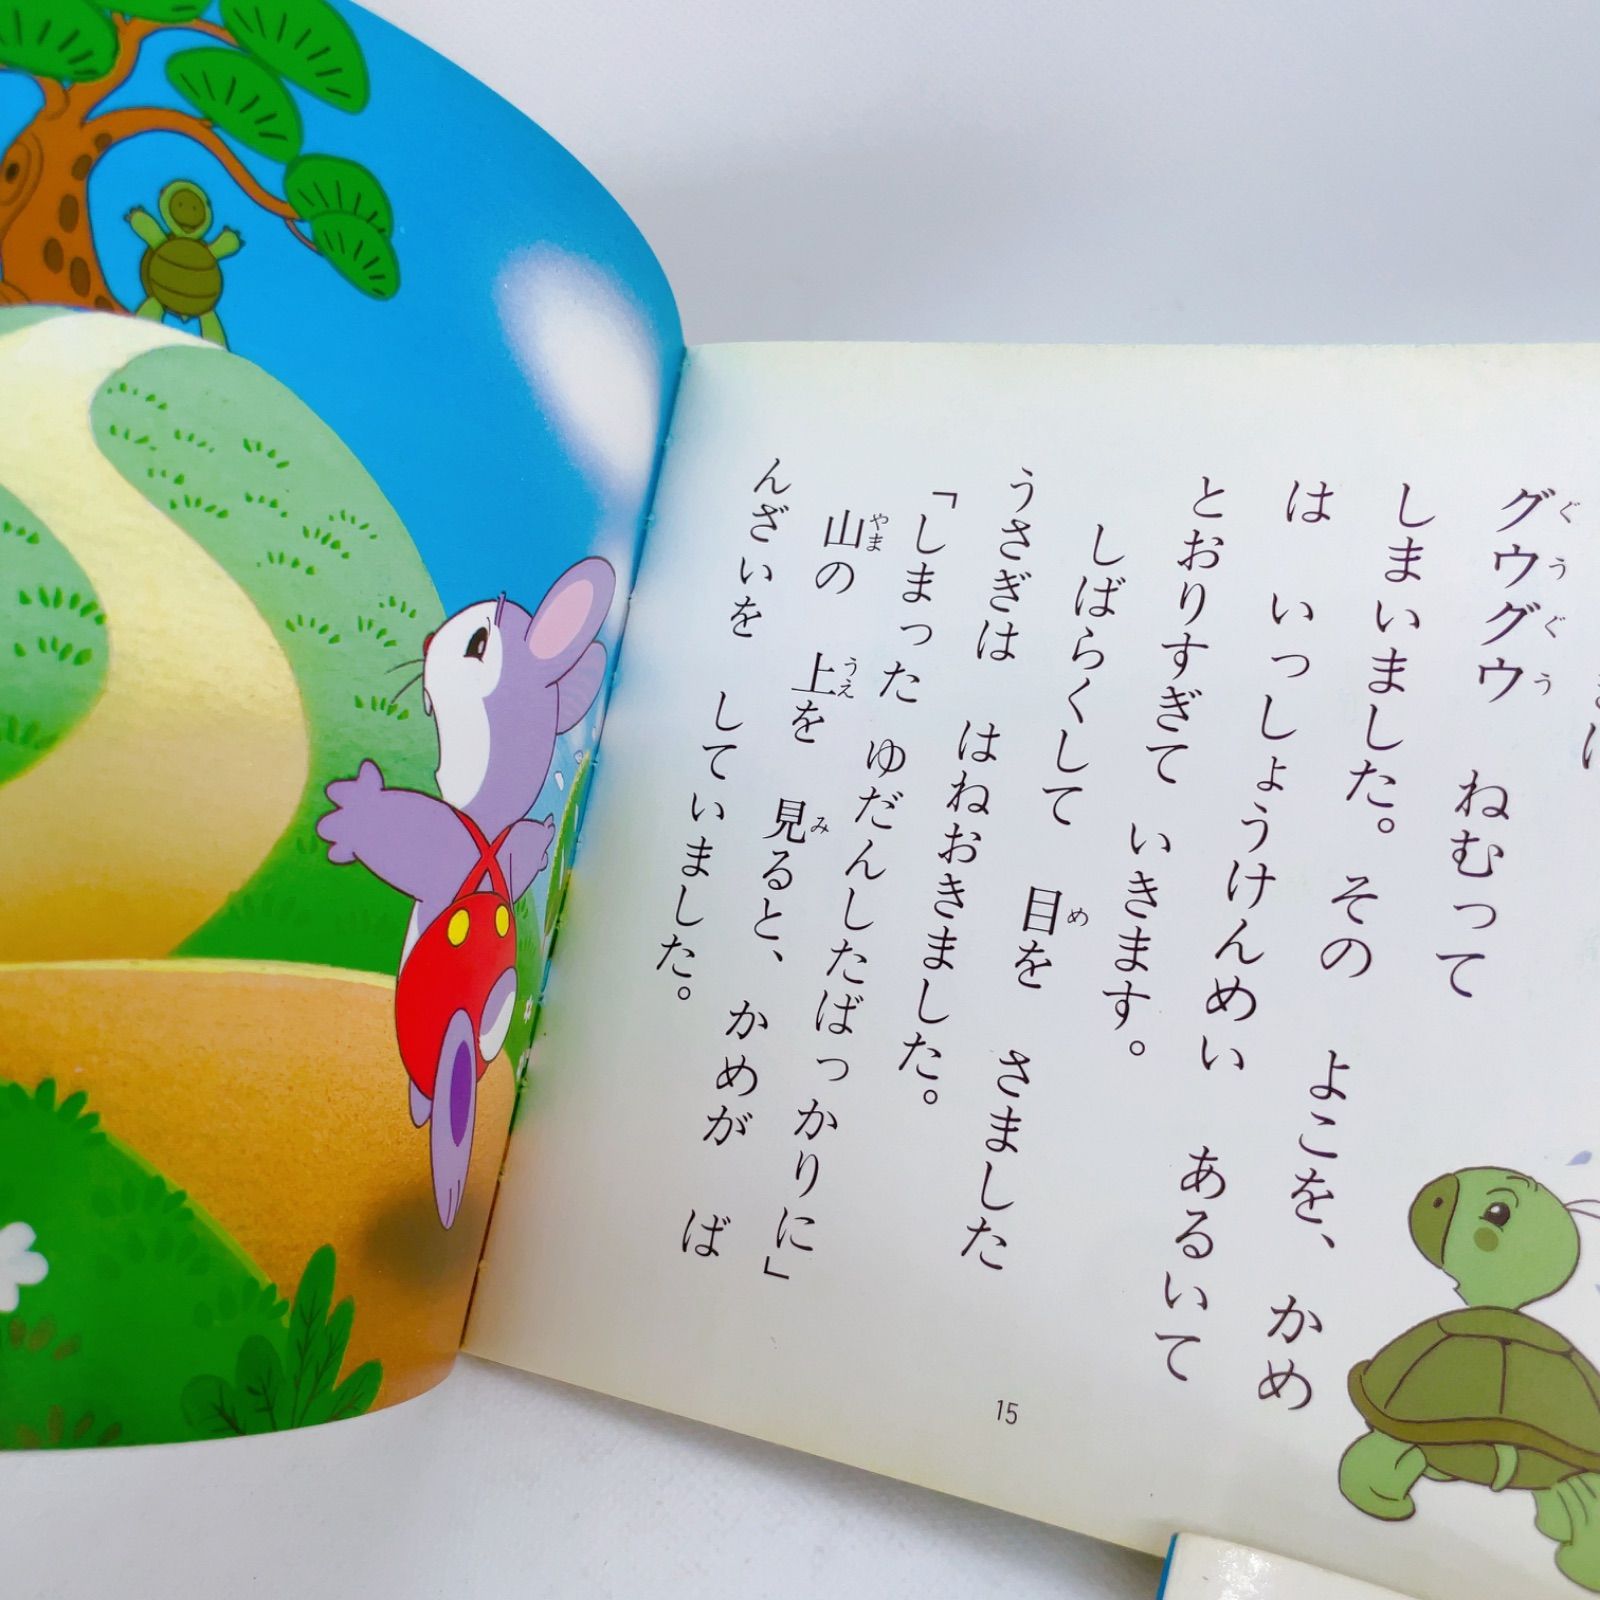 グウグウ ねむって
しまいました。その よこを、かめ
は いっしょうけんめい あるいて
とおりすぎて いきます。
しばらくして 目を さました
うさぎは はねおきました。
「しまった ゆだんしたばっかりに」
山の 上を 見ると、かめが ば
んざいを していました。
15